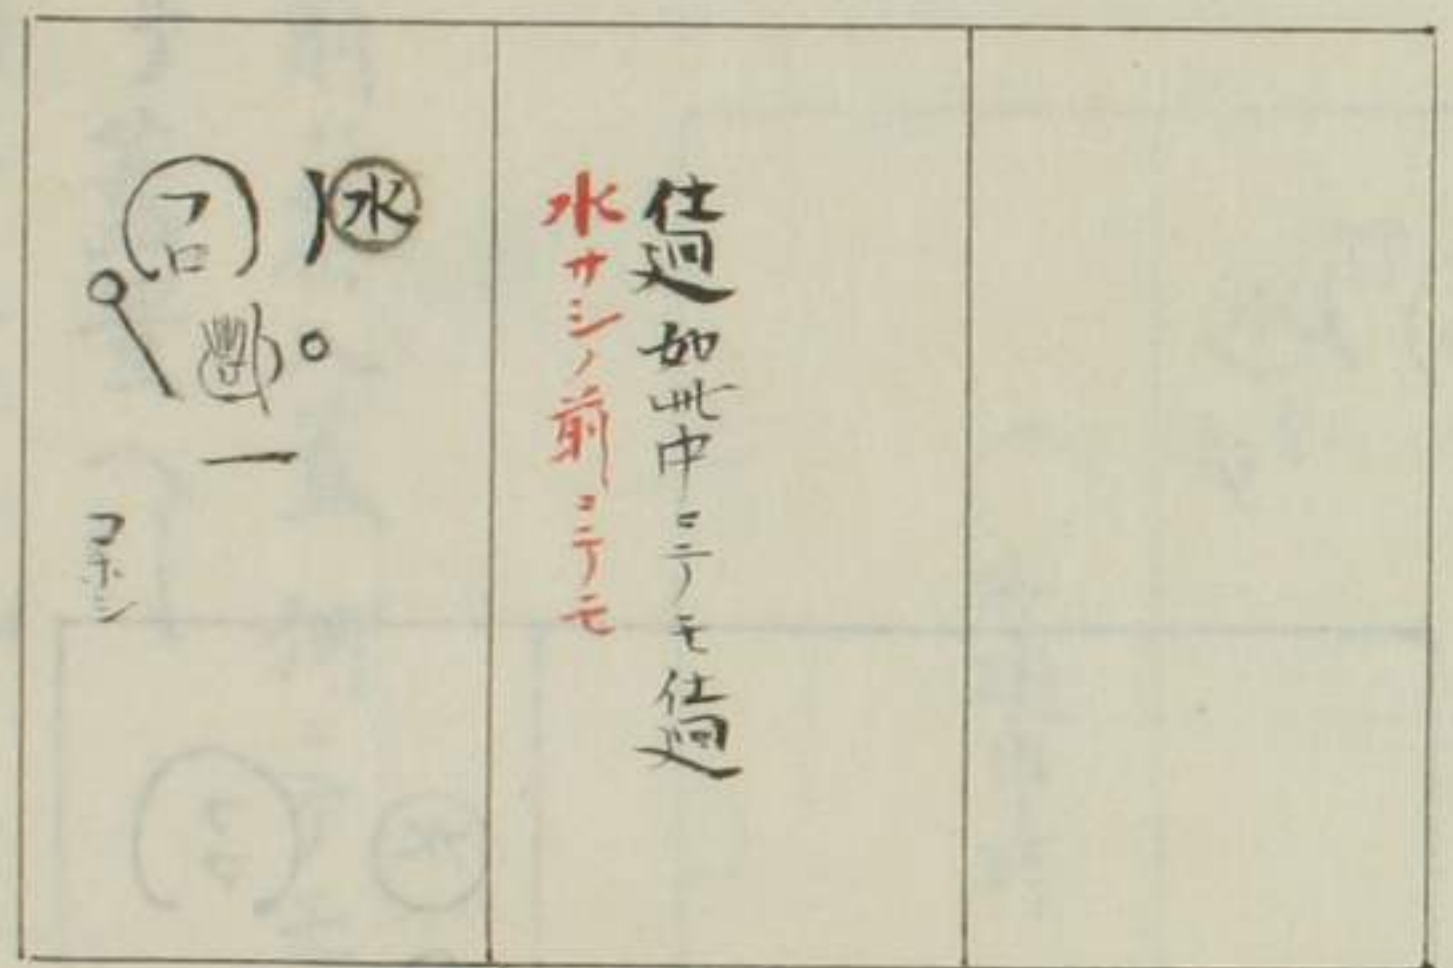 仕廻如此中ニテモ仕廻
水サシノ前ニテモ
水
フロ
コホシ